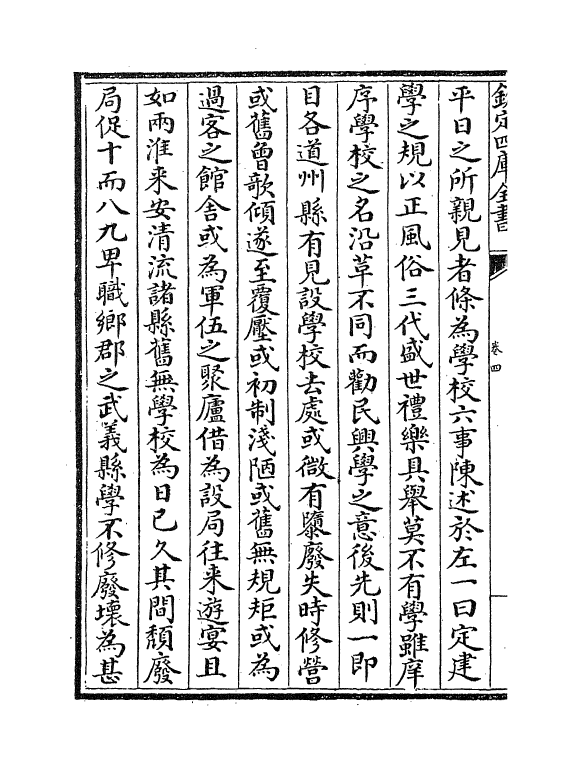 欽定四庫全書
卷四
平日之所親見者條為學校六事陳述於左一曰定建
學之規以正風俗三代盛世禮樂具舉莫不有學雖庠
序學校之名沿革不同而勸民興學之意後先則一即
目各道州縣有見設學校去處或微有隳廢失時修營
或舊曾欹傾遂至覆壓或初制淺陋或舊無規矩或為
過客之館舍或為軍伍之聚廬借為設局往来遊宴且
如兩淮来安清流諸縣舊無學校為日已久其間頽廢
局促十而八九卑職鄉郡之武義縣學不修廢壊為甚